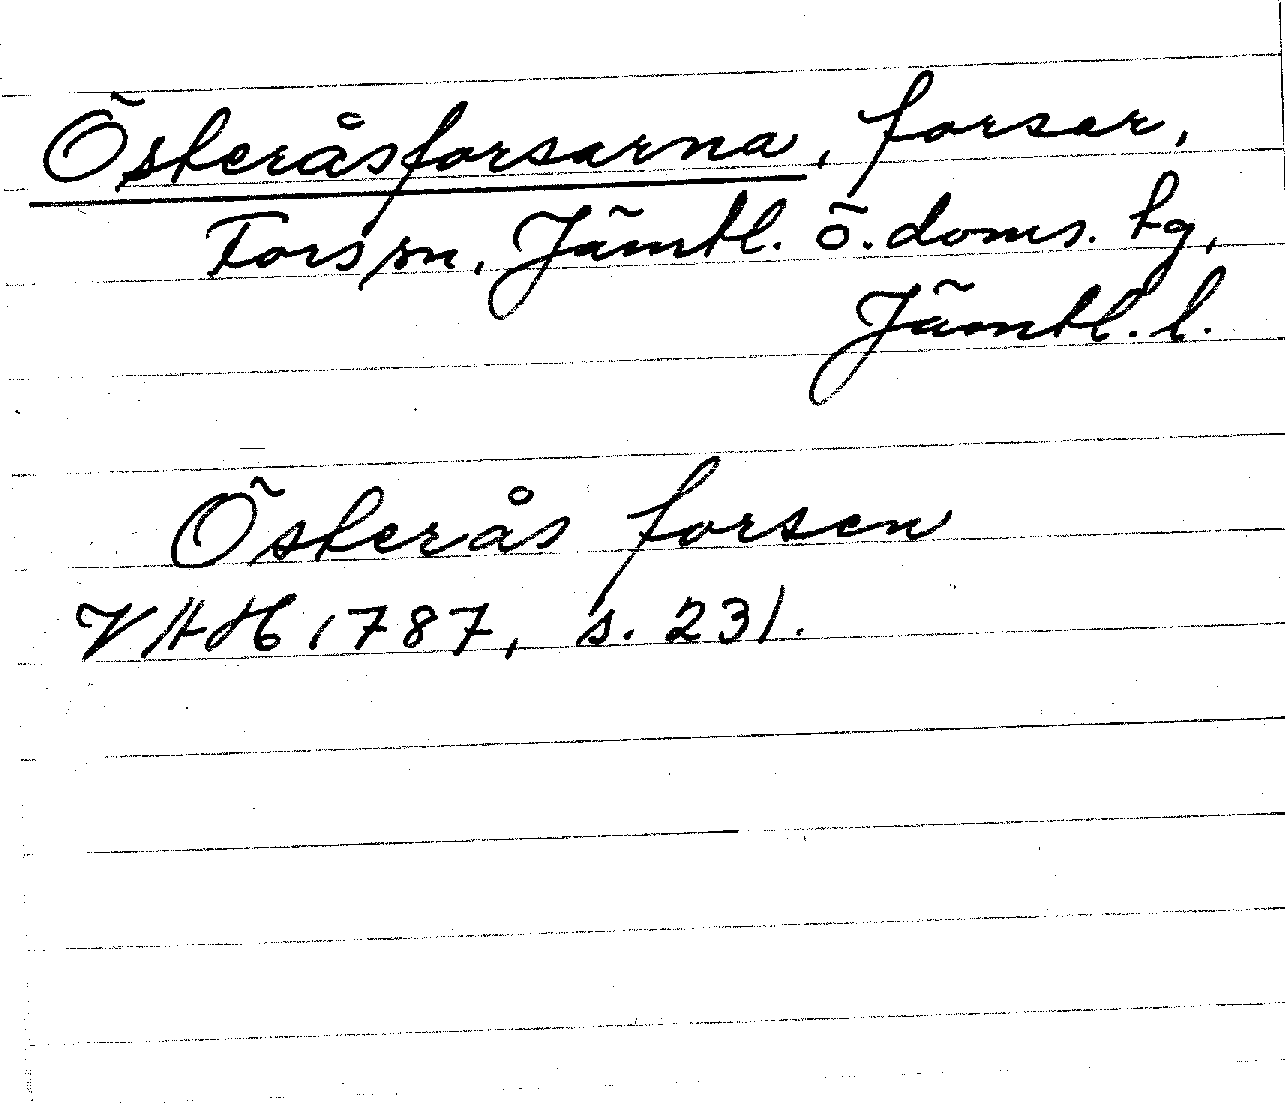 Österåsforsarna, forsar,
Fors sn, Jämtl. ö. doms. tg,
Jämtl. l.
Österås forsen
VAH 1787, s. 231.